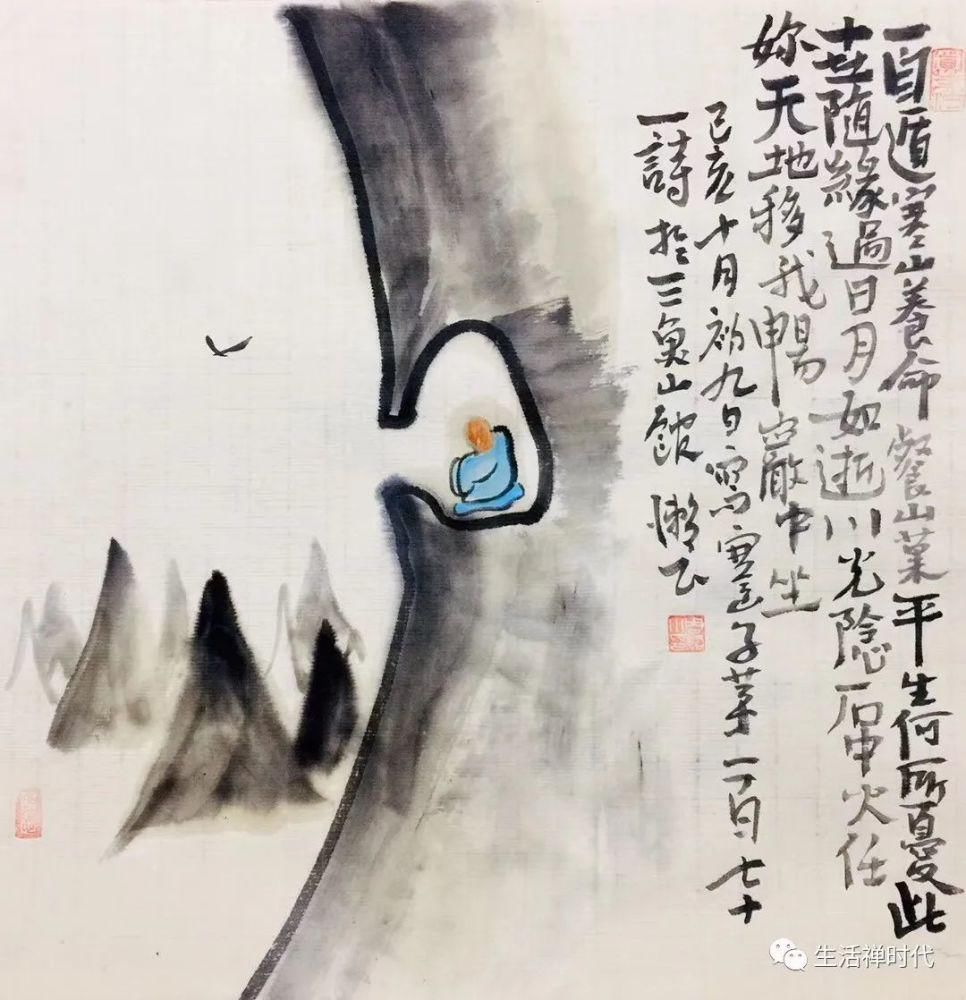 一自遁寒山養命餐山菓平生何所憂此
世隨緣過日月如逝川光陰石中火任
妳天地移我暢巖中坐
己亥十月初九日寫寒山子第一百七十
一詩於三魚山館 懶
生活禅时代